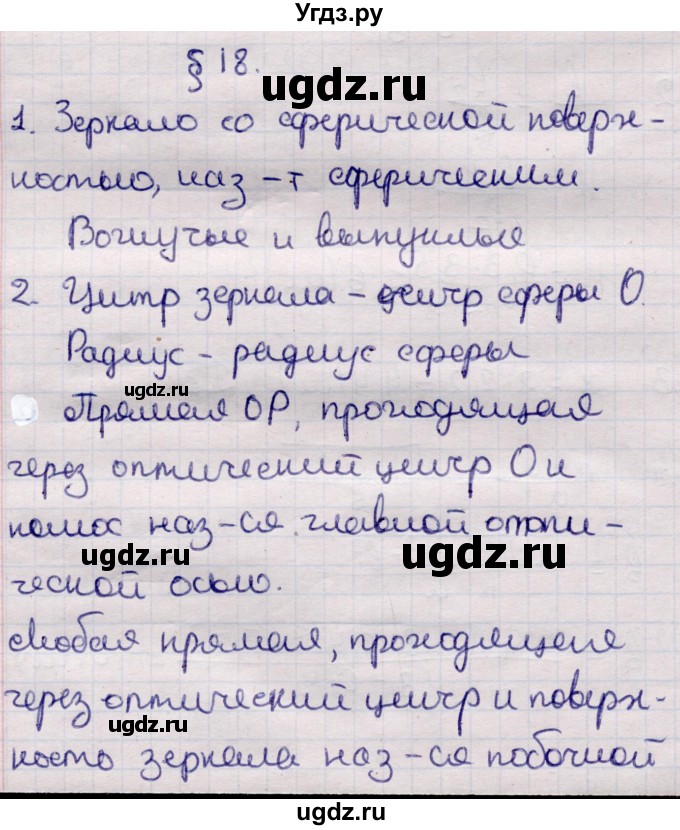 Угдз.ру
§ 18.
ugdz.ru
1. Зеркало со сферической поверх-
ностью, наз-т сферическим.
Вогнутые и выпуклые
2. Центр зеркала - центр сферы О.
Радиус - радиус сферы
ugdz.ru
Прямая ОР, проходящая
через оптический центр О и
полюс наз-ся главной опти-
ugdz.ru
ugdz.ru
ческой осью.
Любая прямая, проходящая
через оптический центр и поверх-
ugdz.ru
ность зеркала наз-ся побочной
ugdz.ru